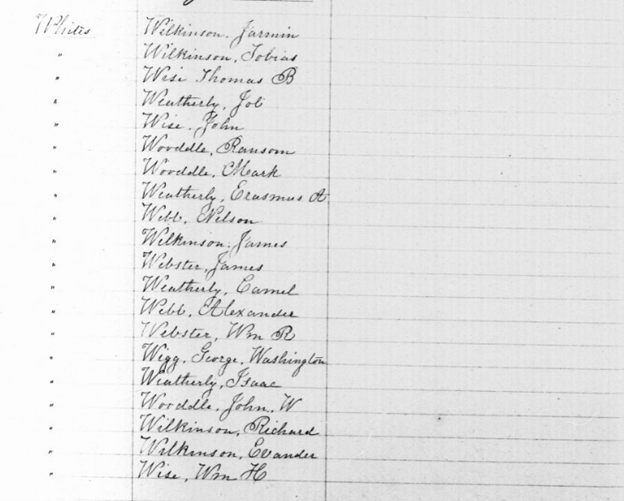 Whites Wilkinson, Jarmin
" Wilkinson, Tobias
" Wise Thomas B
" Weatherly, Job
" Wise, John
" Wooddle, Ransom
" Wooddle, Mark
" Weatherly, Erasmus A
" Webb, Nelson
" Wilkinson, James
" Webster, James
" Weatherly, Camel
" Webb, Alexander
" Webster, Wm R
" Wigg, George, Washington
" Weatherly, Isaac
" Wooddle, John, W
" Wilkinson, Richard
" Wilkinson, Evander
" Wise, Wm H